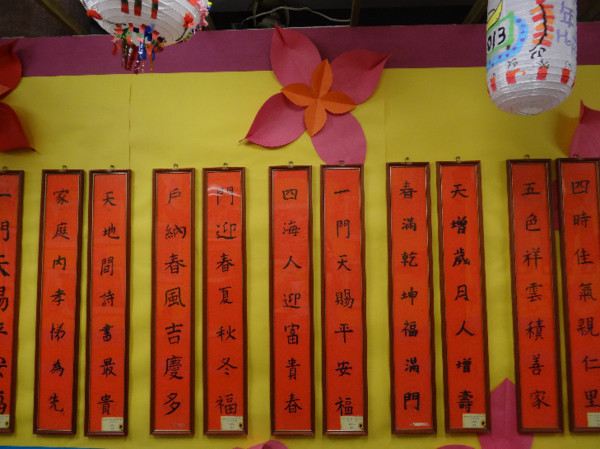 年
He
013
四時佳氣親仁里
五色祥雲積善家
天增歲月人增壽
春滿乾坤福滿門
一門天賜平安福
四海人迎富貴春
門迎春夏秋冬福
戶納春風吉慶多
天地間詩書最貴
家庭內孝悌為先
一門天賜平安福